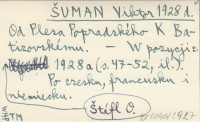 ŠUMAN Viktor 1928 A.
Od Plesa Popradského K Ba-
tizovskému. — W pozycji:
1928 a (s. 47-52, il.).
Po czesku, francusku i
niemiecku.
Štifl O.
WHP TM